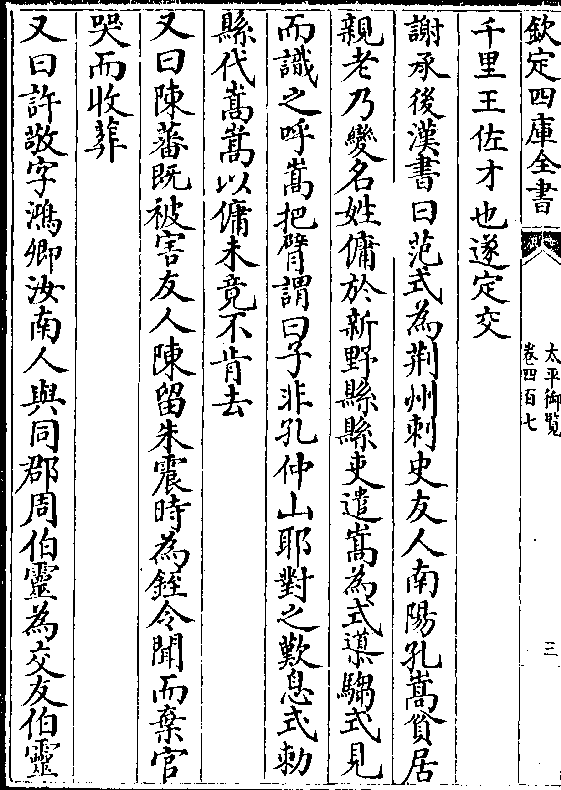 欽定四庫全書
太平御覽
卷四百七
三
千里王佐才也遂定交
謝承後漢書曰范式為荆州刺史友人南陽孔嵩貧居
親老乃變名姓傭於新野縣縣吏遣嵩為式導騶式見
而識之呼嵩把臂謂曰子非孔仲山耶對之歎息式勅
縣代嵩嵩以傭未竟不肯去
又曰陳蕃既被害友人陳留朱震時為銍令聞而棄官
哭而收葬
又曰許敬字鴻卿汝南人與同郡周伯靈為交友伯靈